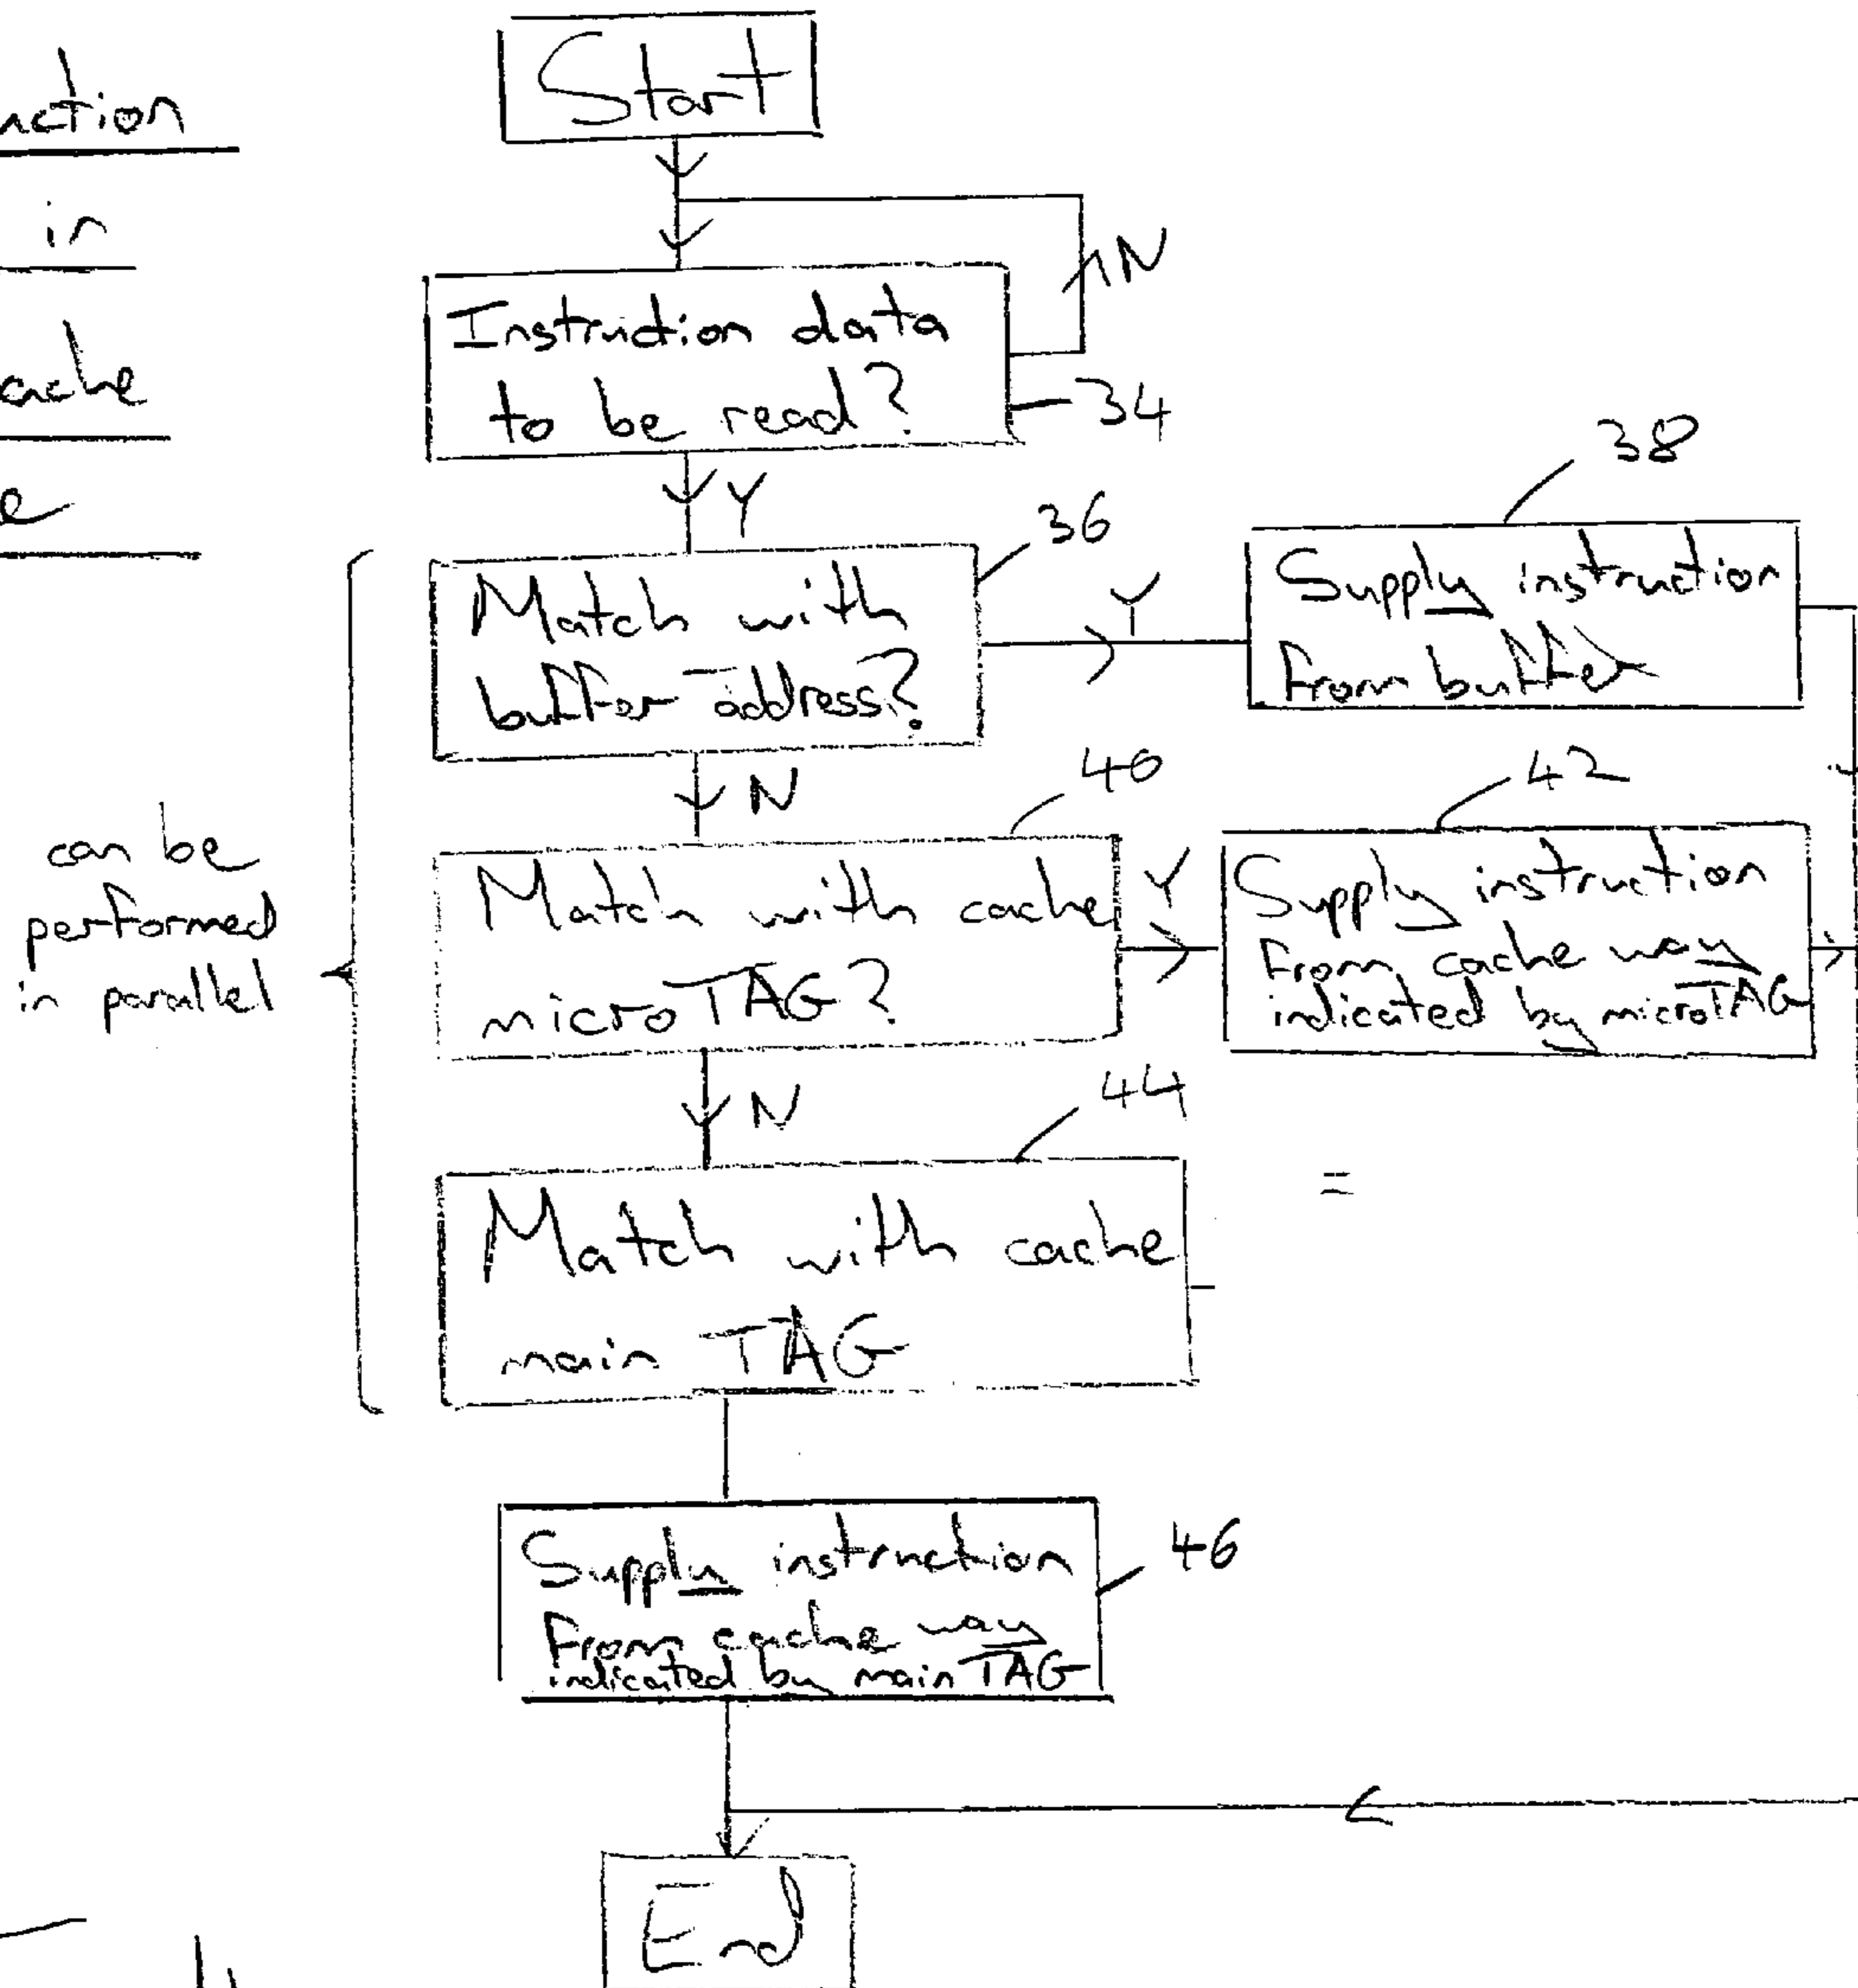 Start
in
N
Instruction data
to be read?
34
Y
38
36
Match with
buffer address?
Y
Supply instruction
From buffer
N
40
42
can be
performed
in parallel
Match with cache
microTAG?
Y
Supply instruction
From cache way
indicated by microTAG
N
44
Match with cache
main TAG
=
Supply instruction
From cache way
indicated by main TAG
46
End